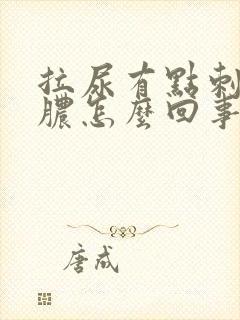 拉尿有點刺
膿怎麼回事
唐成